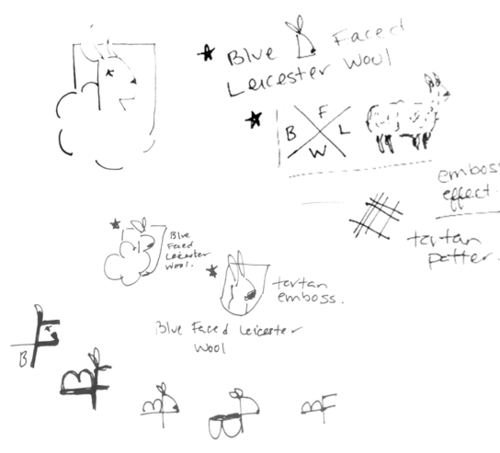 Blue Faced
Leicester Wool
F
B L
W
emboss
effect.
tartan
patter.
Blue
Faced
Leicester
Wool.
tartan
emboss.
Blue Faced Leicester
Wool
B
B
BF